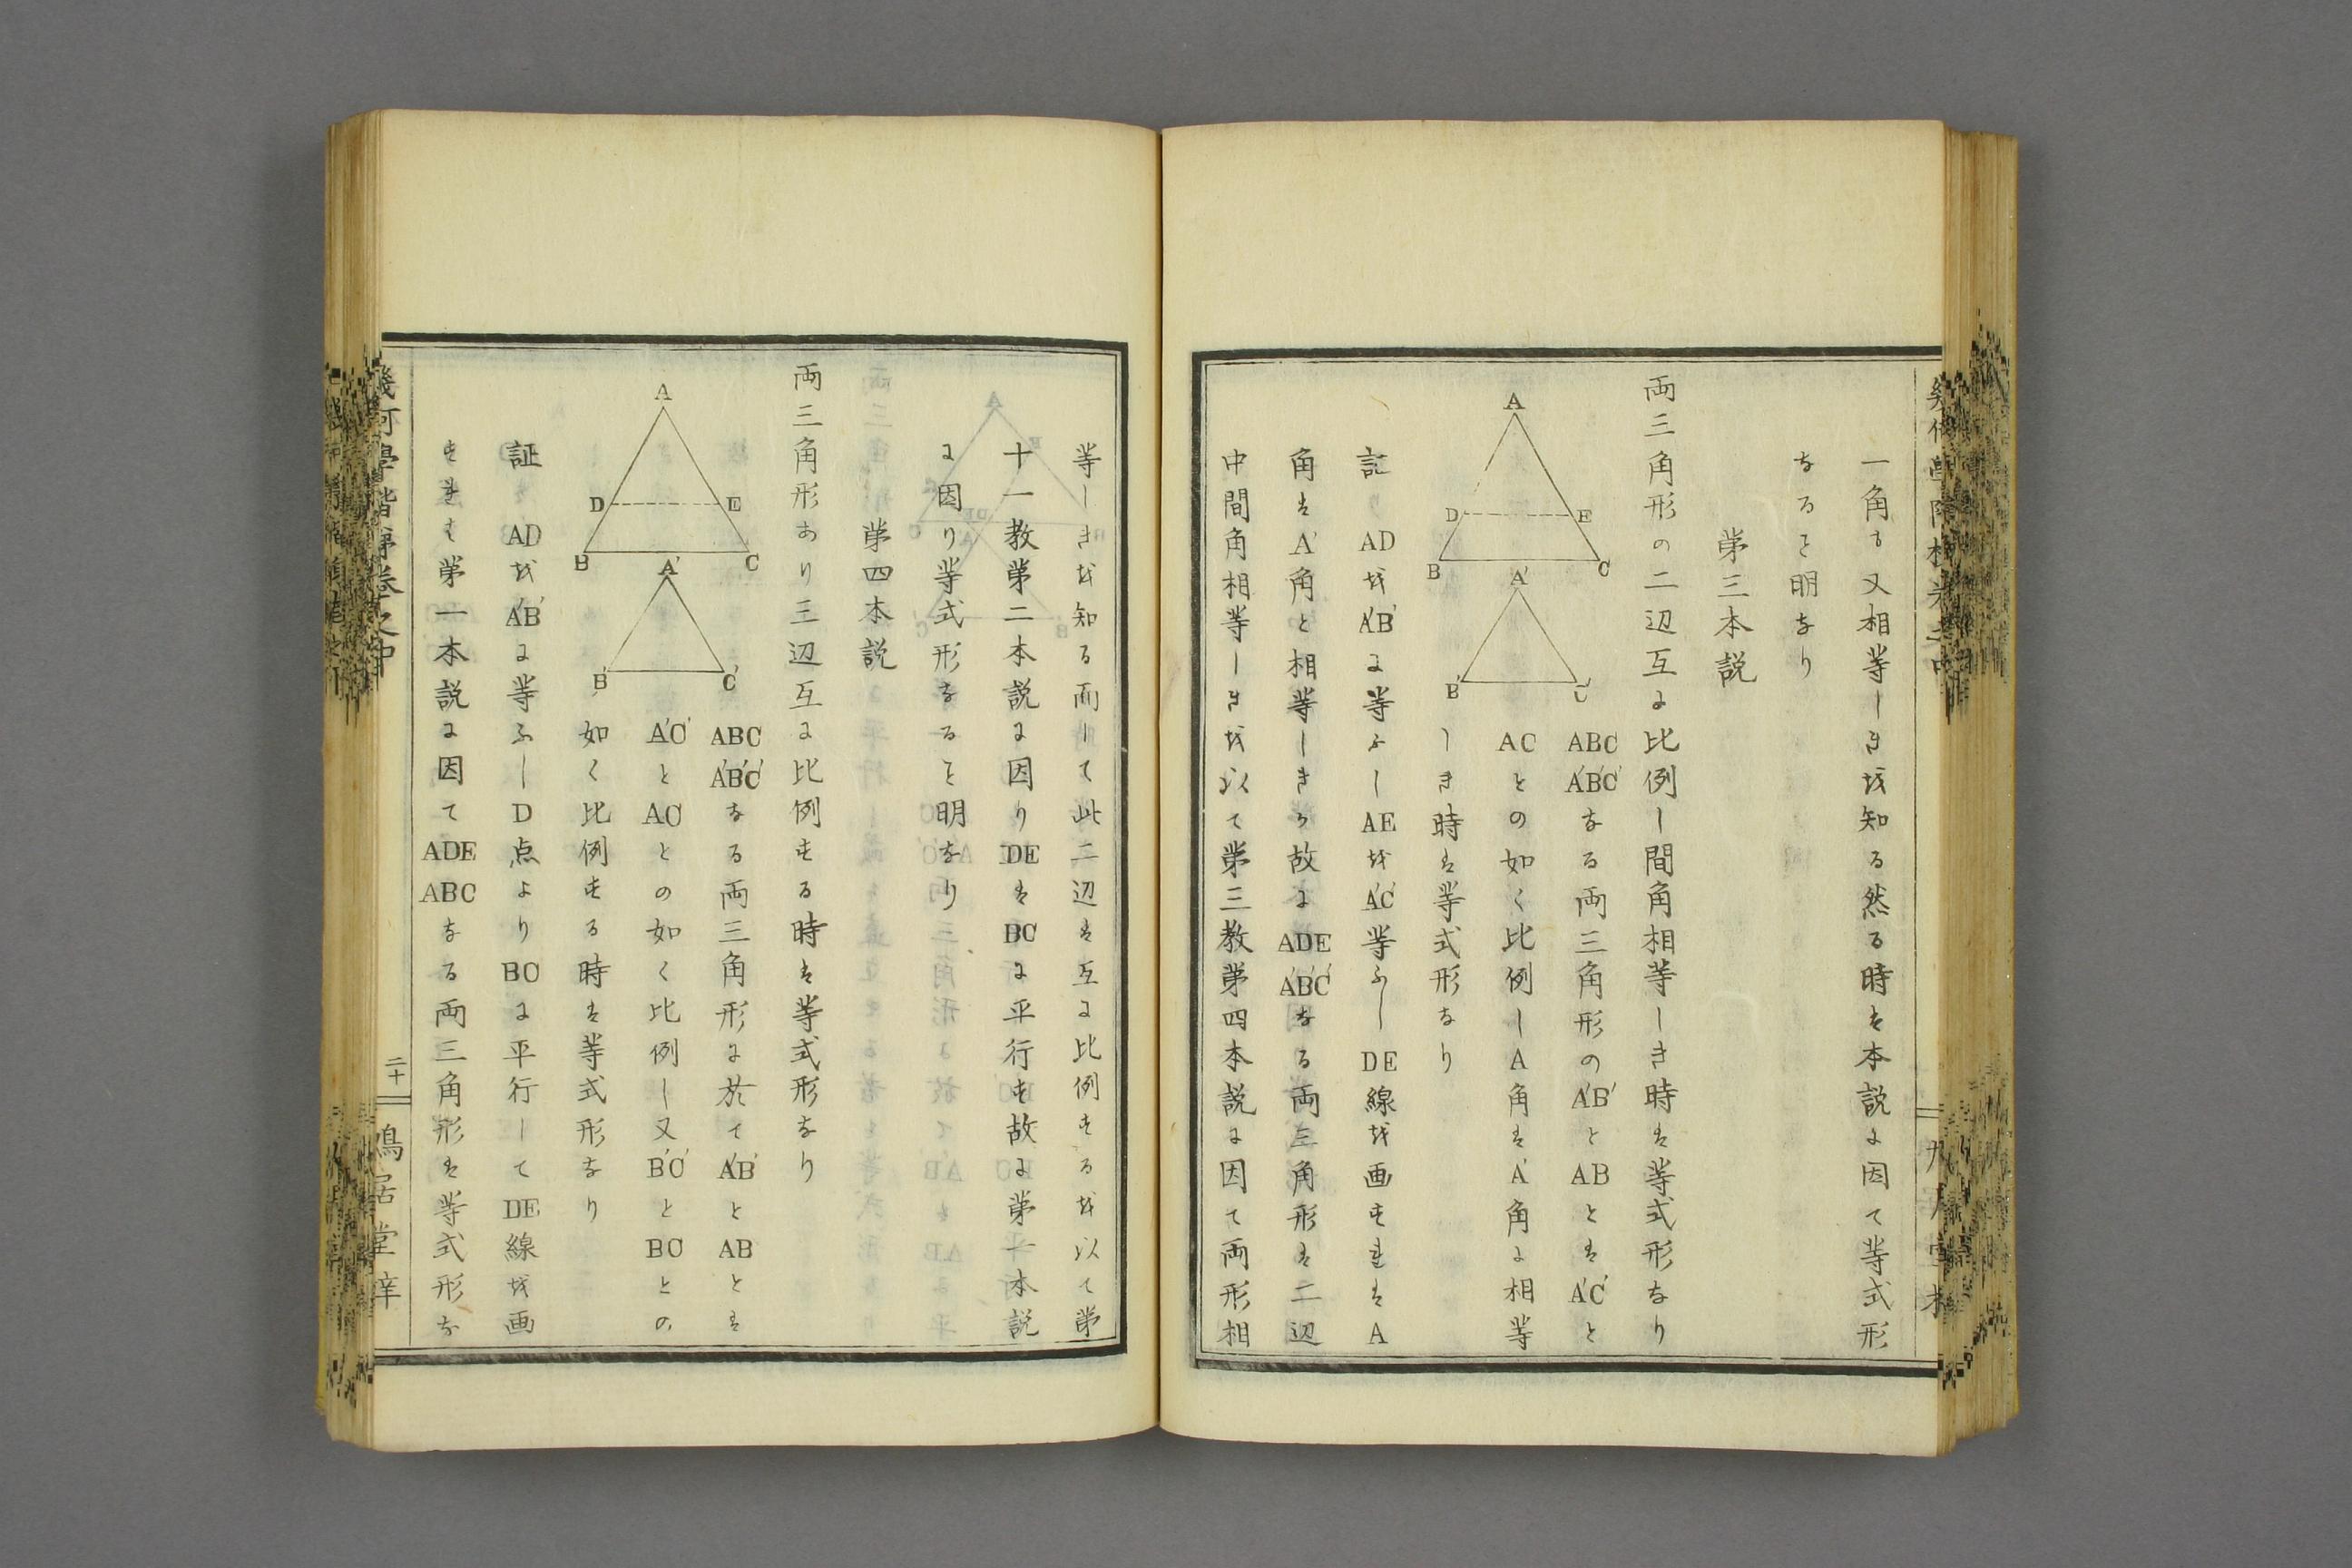 一角も又相等しきを知る然る時は本説に因て等式形
なると明なり
第三本説
両三角形の二辺互に比例し間角相等しき時は等式形なり
ABC A'B'C'なる両三角形のA'B'とABとはA'C'と
ACとの如く比例しA角はA'角に相等
しき時は等式形なり
A
D
E
B
C
A'
B'
C'
証 ADをA'B'に等ふしAEをA'C'等ふしDE線を画すればA
角はA'角と相等しきが故にADE A'B'C'なる両三角形は二辺
中間角相等しきを以て第三教第四本説に因て両形相
等しきを知る而して此二辺は互に比例するを以て第
十一教第二本説に因りDEはBCに平行す故に第一本説
に因り等式形なると明なり
第四本説
両三角形あり三辺互に比例する時は等式形なり
ABC A'B'C'なる両三角形に於てA'B'とABとは
A'C'とACとの如く比例し又B'C'とBCとの
如く比例する時は等式形なり
A
D
E
B
C
A'
B'
C'
証 ADをA'B'に等ふしD点よりBCに平行してDE線を画
すれば第一本説に因てADE ABCなる両三角形は等式形な
幾何學階梯巻之中
二十